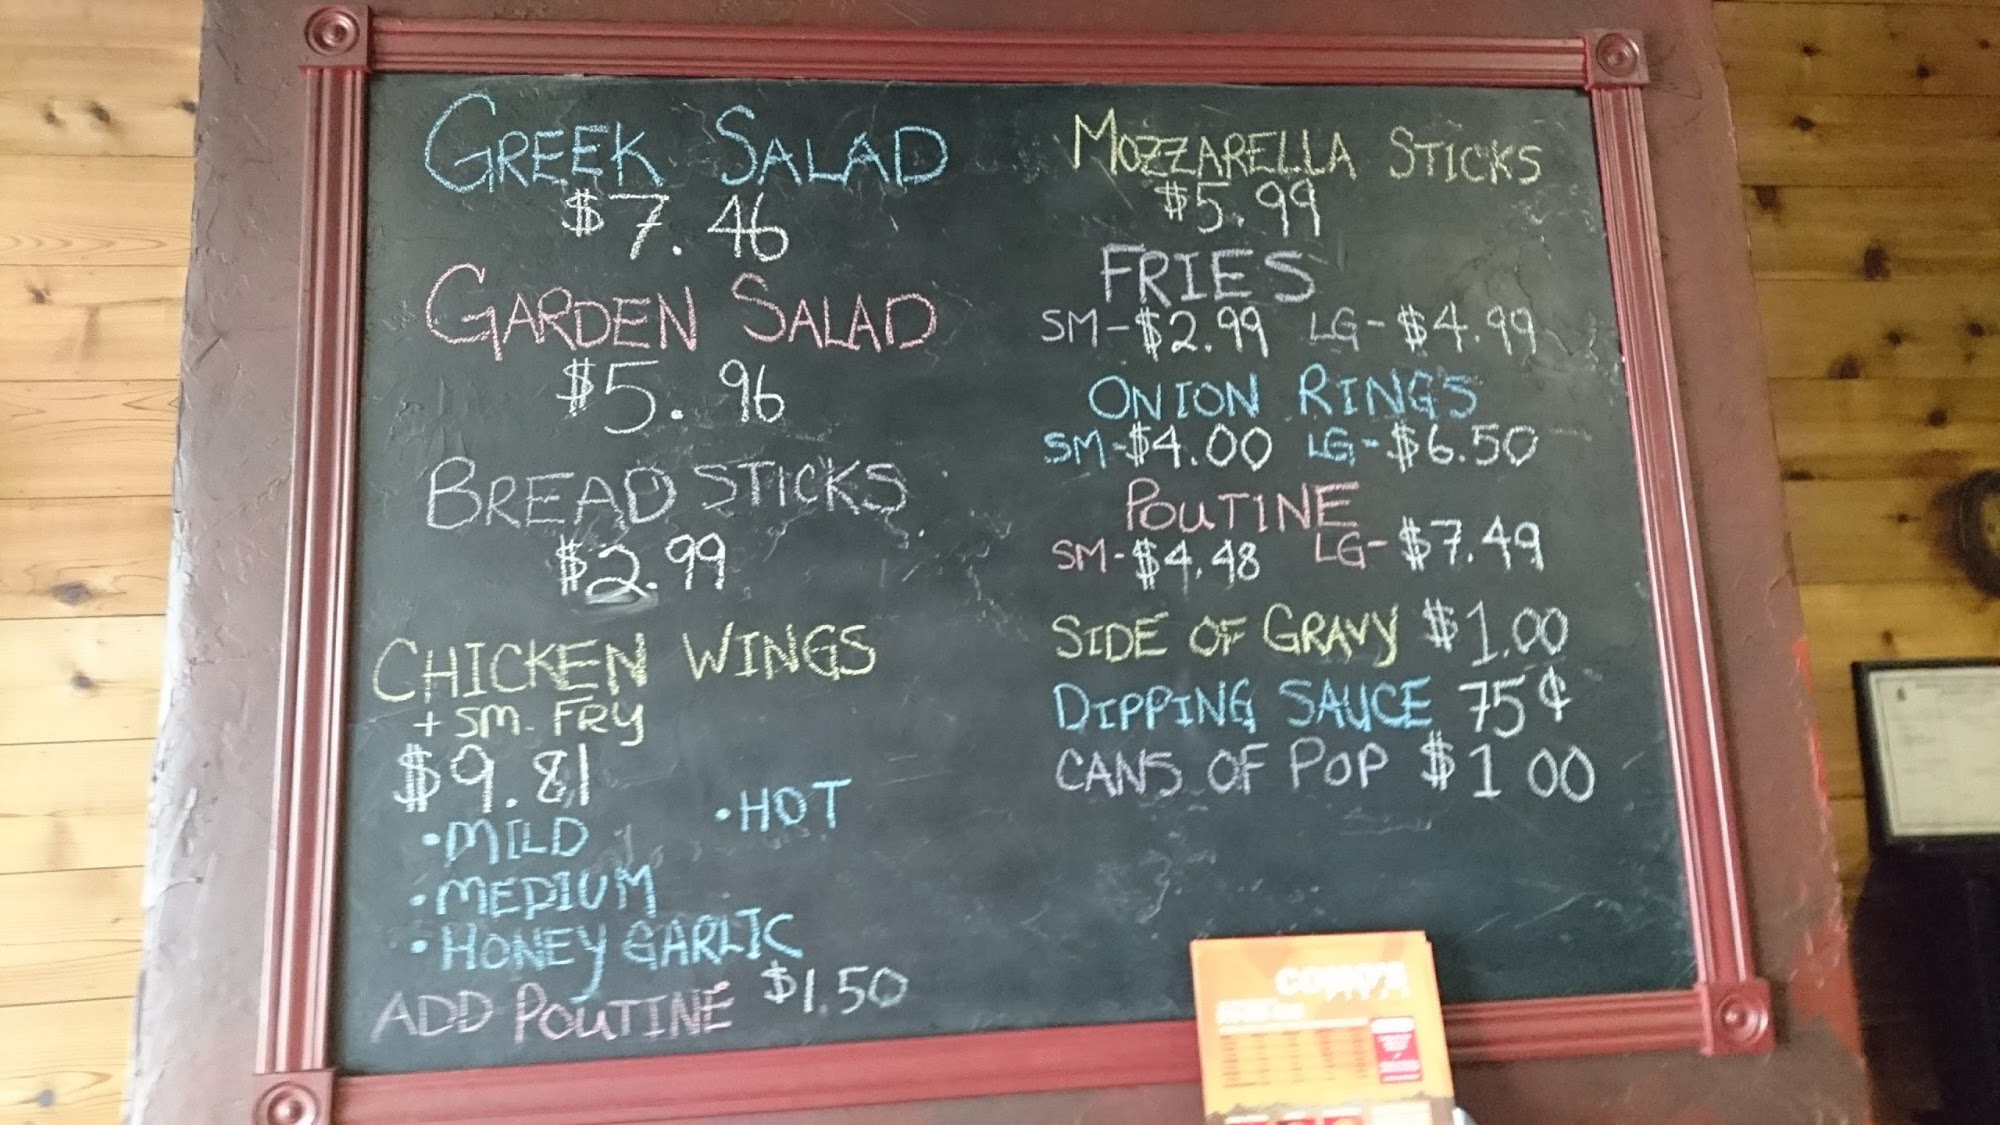 GREEK SALAD
$7.46
GARDEN SALAD
$5.96
BREAD STICKS
$2.99
CHICKEN WINGS
+ SM. FRY
$9.81
• MILD
• HOT
• MEDIUM
• HONEY GARLIC
ADD POUTINE $1.50
MOZZARELLA STICKS
$5.99
FRIES
SM-$2.99 LG-$4.99
ONION RINGS
SM-$4.00 LG-$6.50
POUTINE
SM-$4.48 LG-$7.49
SIDE OF GRAVY $1.00
DIPPING SAUCE 75¢
CANS OF POP $1 00